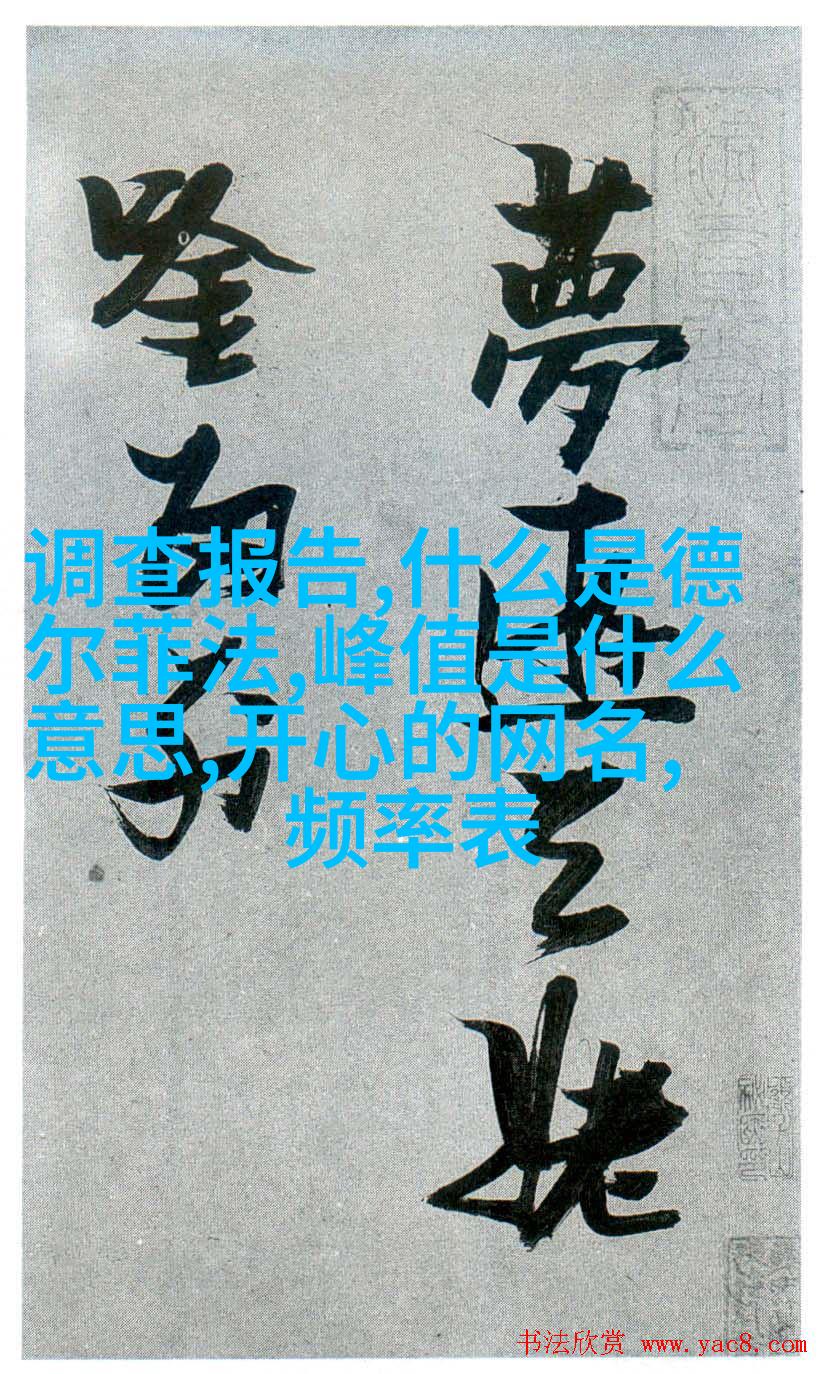 夢遊天姥
唫留別
调查报告,什么是德
尔菲法,峰值是什么
意思,开心的网名,
频率表
书法欣赏 www.yac8.com